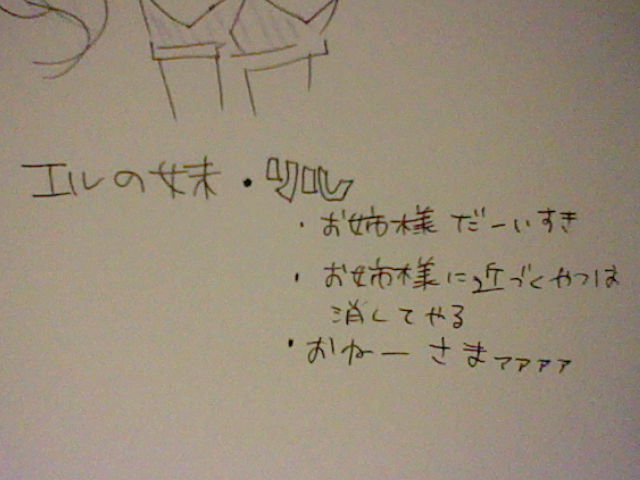 エルの妹・リル
・お姉様だーいすき
・お姉様に近づくやつは
消してやる
・おねーさまァァァァ